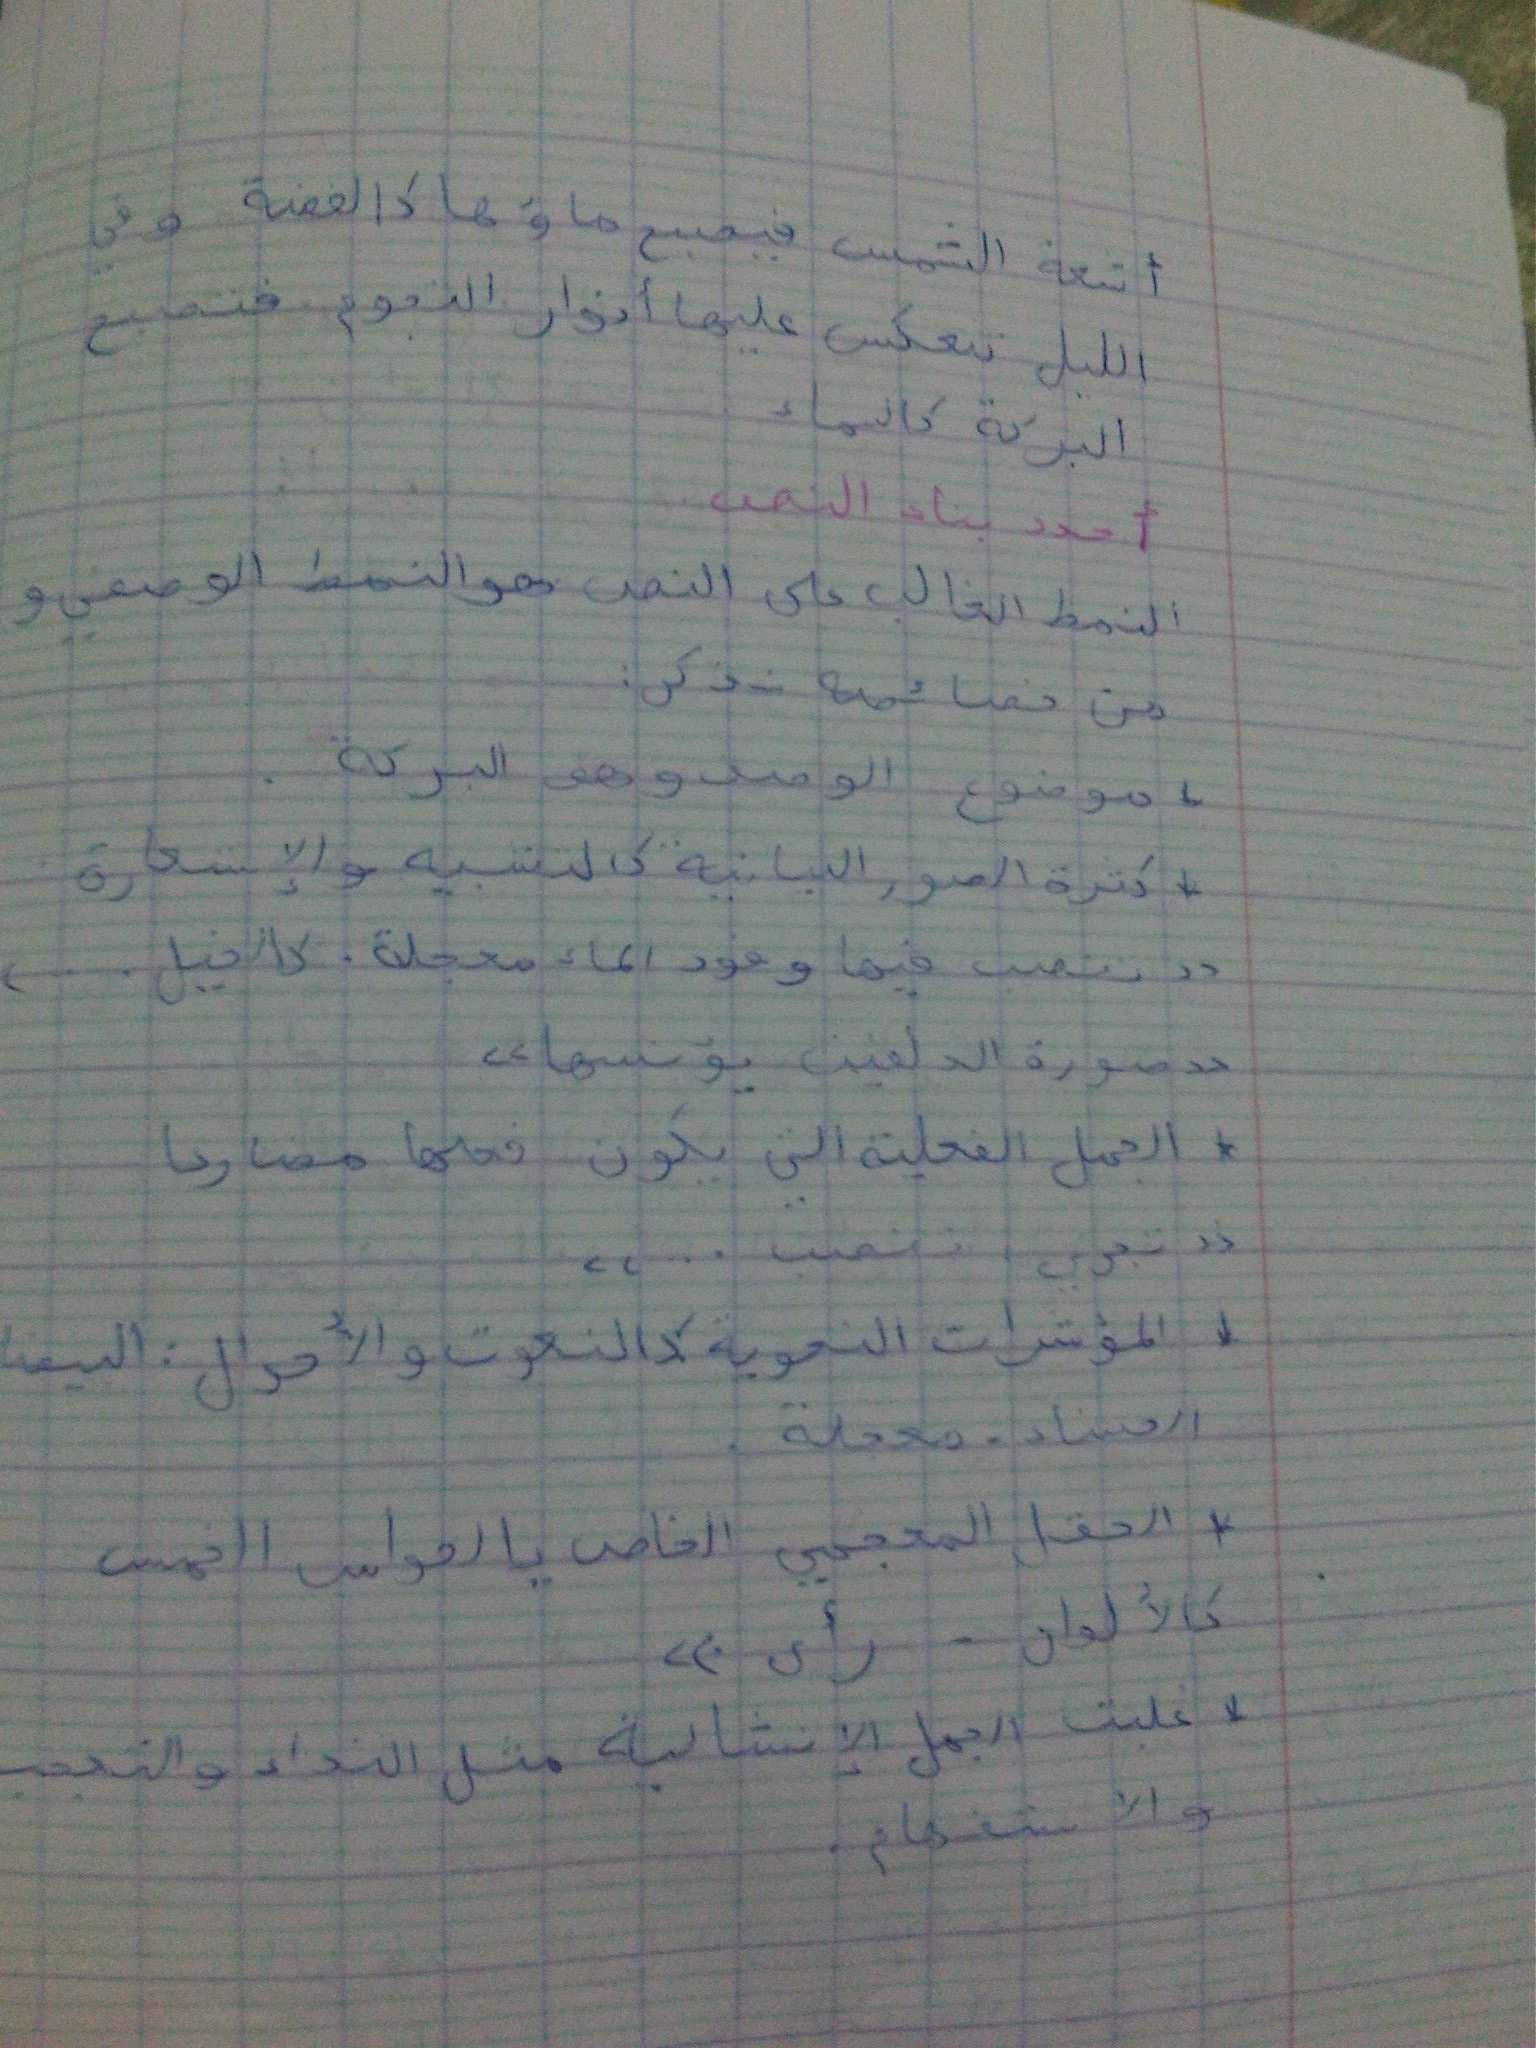 أشعة الشمس فيصبح ماؤها كالفضة وفي
الليل تنعكس عليها أنوار النجوم فتصبح
البركة كالسماء
أحدد بناء النص
النمط الغالب على النص هو النمط الوصفي و
من خصائصه نذكر:
* موضوع الوصف وهو البركة .
* كثرة الصور البيانية كالتشبيه والإستعارة
<< تنصب فيها وفود الماء معجلة . كالخيل ....
<<صورة الدلفين يؤنسها>>
* الجمل الفعلية التي يكون فعلها مضارعا
<< تجري , تنصب ... >>
* المؤشرات النحوية كالنعوت والأحوال : البيضا
الحسناء - معجلة .
* الحقل المعجمي الخاص بالحواس الخمس
كالألوان - رأى >>
* غلبت الجمل الإنشائية مثل النداء والتعجب
والاستفهام .